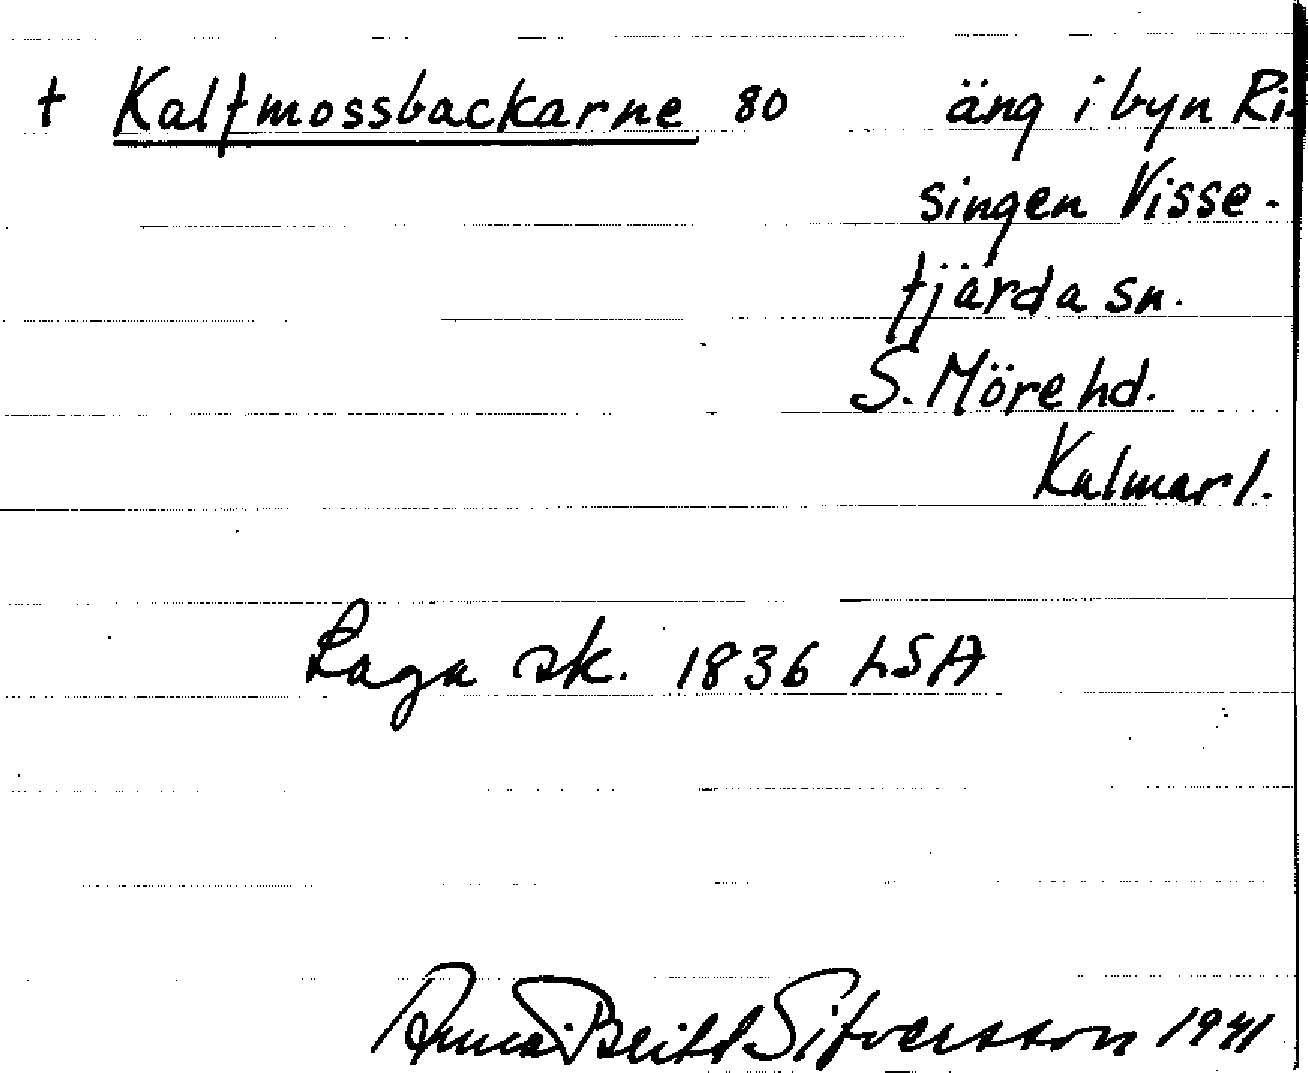 † Kalfmossbackarne 80 äng i byn Ri-
singen Visse-
fjärda sn.
S. Möre hd.
Kalmar l.
Laga sk. 1836 LSA
Anna-Britt Silversson 1941